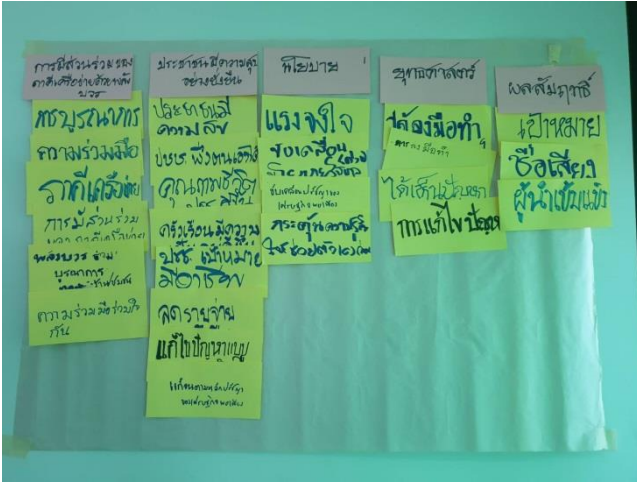 การมีส่วนร่วมของ
ภาคีเครือข่าย
บวร
การบูรณาการ
ความร่วมมือ
ภาคีเครือข่าย
การมีส่วนร่วม
พลังบวร ร่วม
บูรณาการ
ความร่วมมือร่วมใจ
กัน
ประชาชนมีความสุข
อย่างยั่งยืน
ประชาชนมี
ความสุข
ปชช พึ่งตนเองได้
คุณภาพชีวิต
ครัวเรือนมีความ
ปชช เป้าหมาย
มีอาชีพ
ลดรายจ่าย
แก้ไขปัญหาแบบ
นโยบาย
แรงจูงใจ
ขับเคลื่อน
ขับเคลื่อนปรัชญาของ
เศรษฐกิจพอเพียง
กระตุ้น
ยุทธศาสตร์
ได้ลงมือทำ
การลงมือทำ
ได้เห็นปัญหา
การแก้ไขปัญหา
ผลสัมฤทธิ์
เป้าหมาย
ชื่อเสียง
ผู้นำเข้มแข็ง